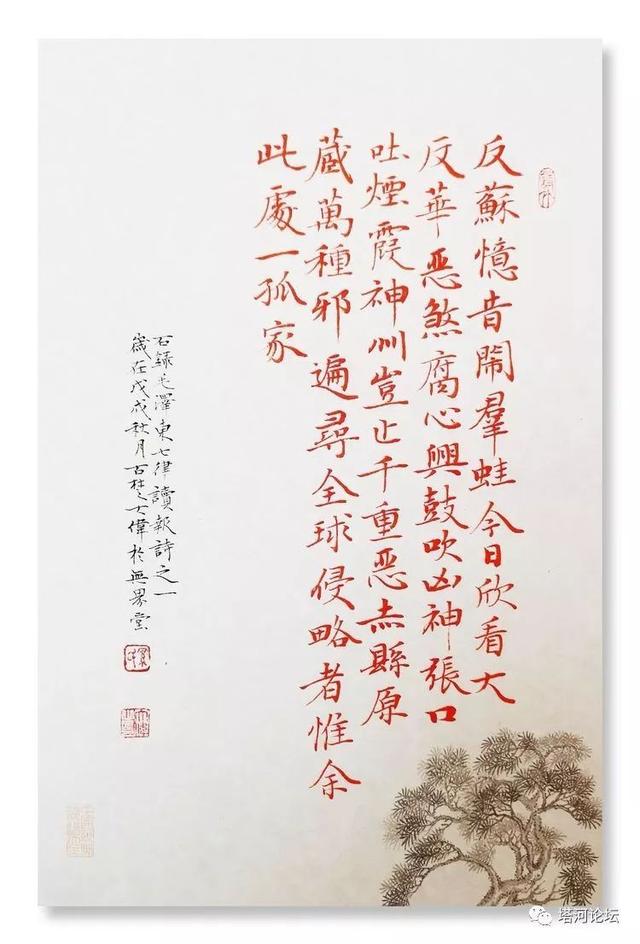 反蘇憶昔鬧羣蛙今日欣看大
反華恶煞腐心興鼓吹凶神張口
吐煙霞神州豈止千重恶赤縣原
蔵萬種邪遍尋全球侵略者惟余
此處一孤家
右録毛澤東七律讀報詩之一
歲在戊戌秋月古大偉於無界堂
塔河论坛